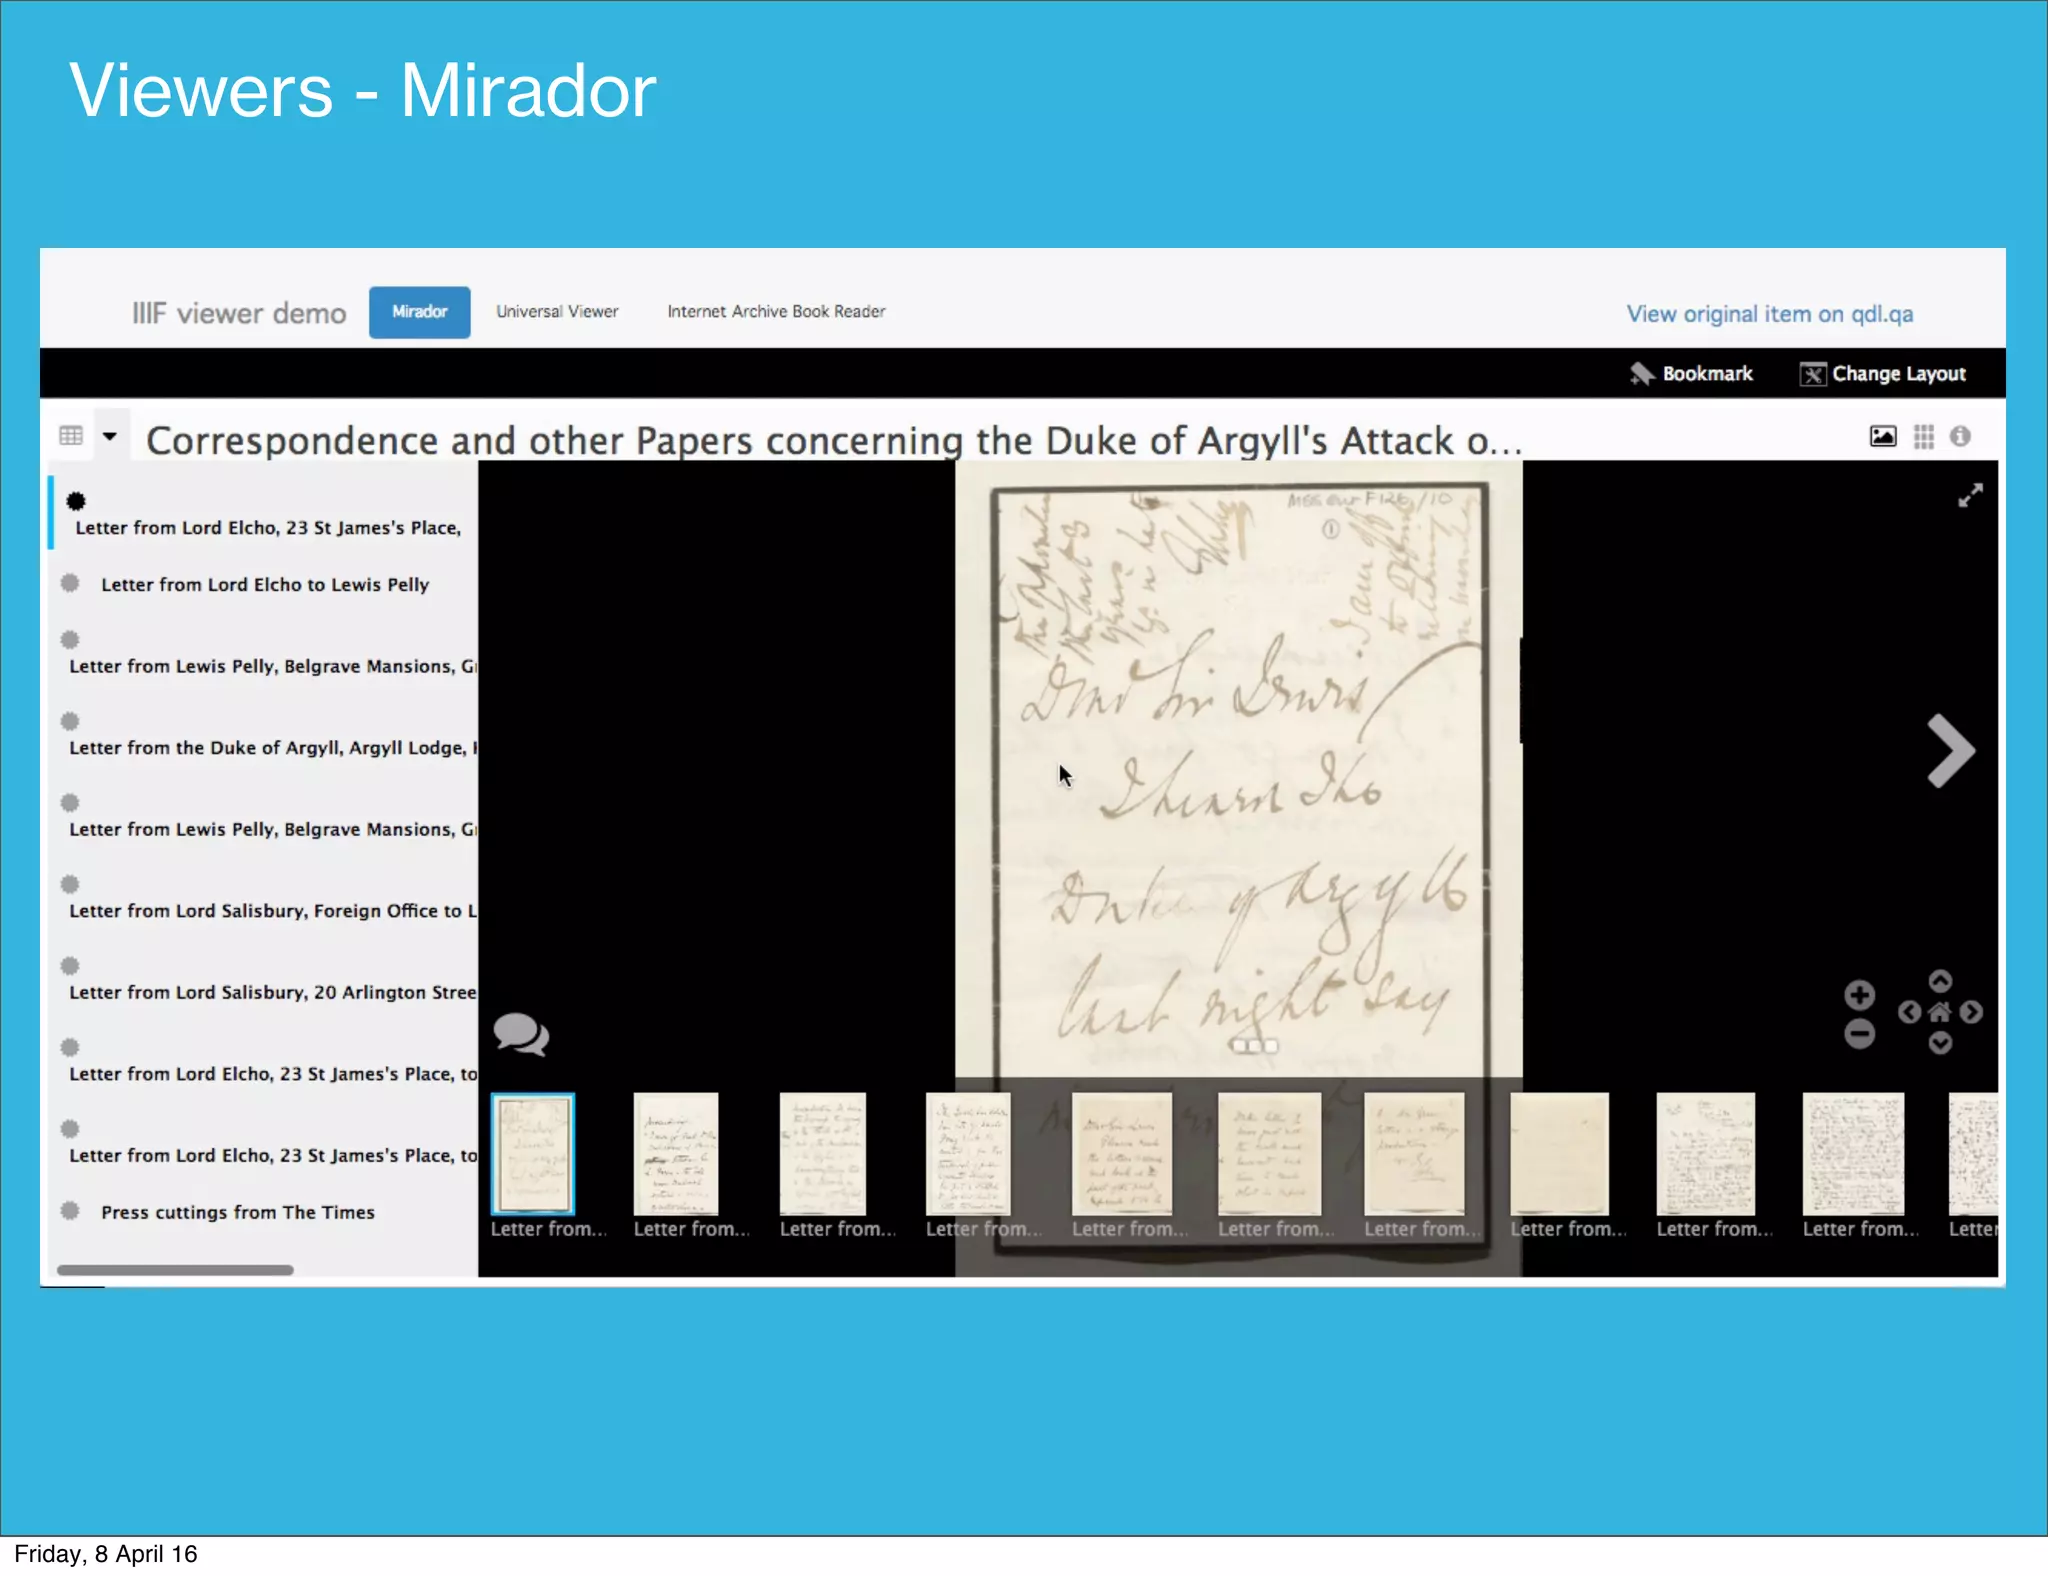 Viewers - Mirador
IIIF viewer demo
Mirador
Universal Viewer
Internet Archive Book Reader
View original item on qdl.qa
Bookmark
Change Layout
Correspondence and other Papers concerning the Duke of Argyll's Attack o...
Letter from Lord Elcho, 23 St James's Place,
Letter from Lord Elcho to Lewis Pelly
Letter from Lewis Pelly, Belgrave Mansions, Gr
Letter from the Duke of Argyll, Argyll Lodge, K
Letter from Lewis Pelly, Belgrave Mansions, Gr
Letter from Lord Salisbury, Foreign Office to L
Letter from Lord Salisbury, 20 Arlington Stree
Letter from Lord Elcho, 23 St James's Place, to
Letter from Lord Elcho, 23 St James's Place, to
Press cuttings from The Times
Mss Eur F126/10
1
I am
Dear Sir Lewis
I heard the
Duke of Argyll
last night say
Letter from...
Letter from...
Letter from...
Letter from...
Letter from...
Letter from...
Letter from...
Letter from...
Letter from...
Letter from...
Letter
Friday, 8 April 16